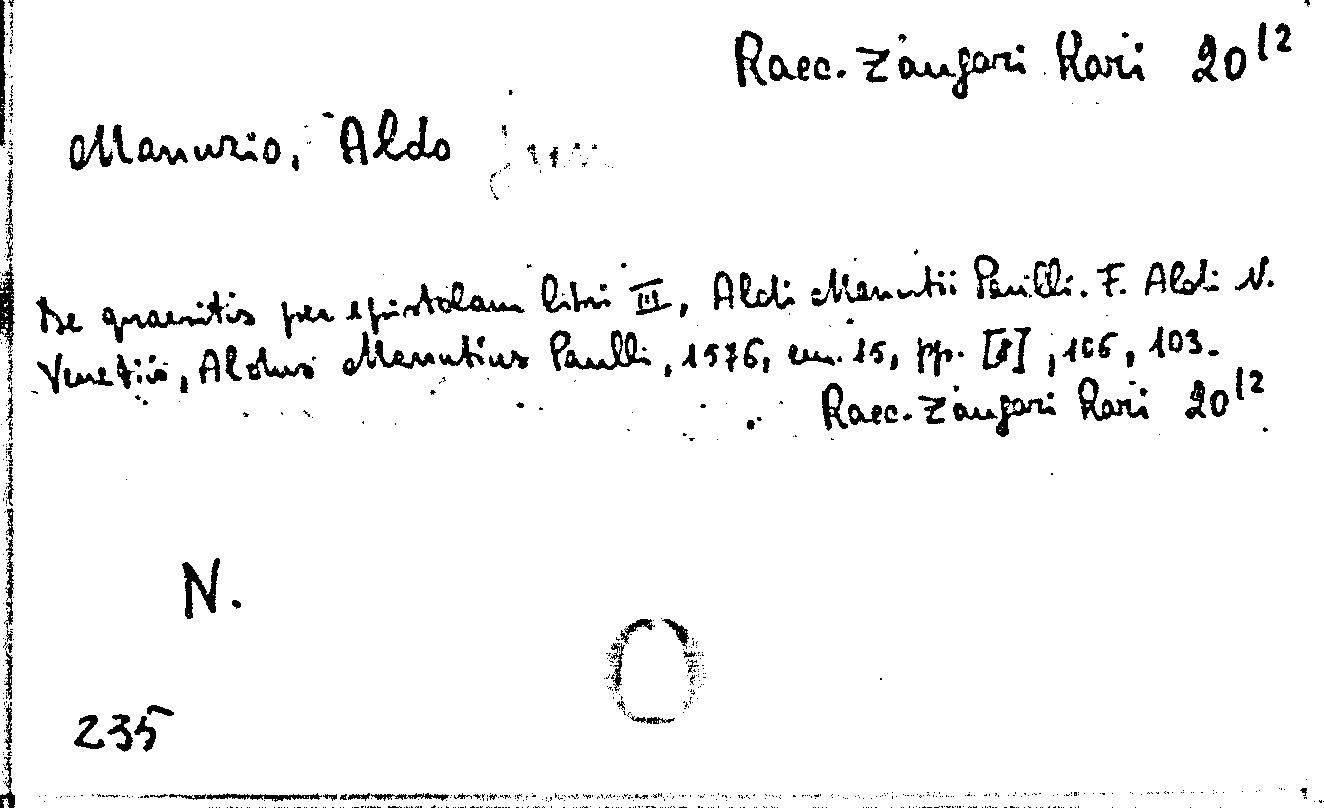 Racc. Zangari Rari 20 12
Manuzio, Aldo jun
De quaesitis per epistolam libri III, Aldi Manutii Paulli. F. Aldi N.
Venezia, Aldus Manutius Paulli, 1576, cm. 15, pp. [8], 106, 103.
Racc. Zangari Rari 20 12
N.
235